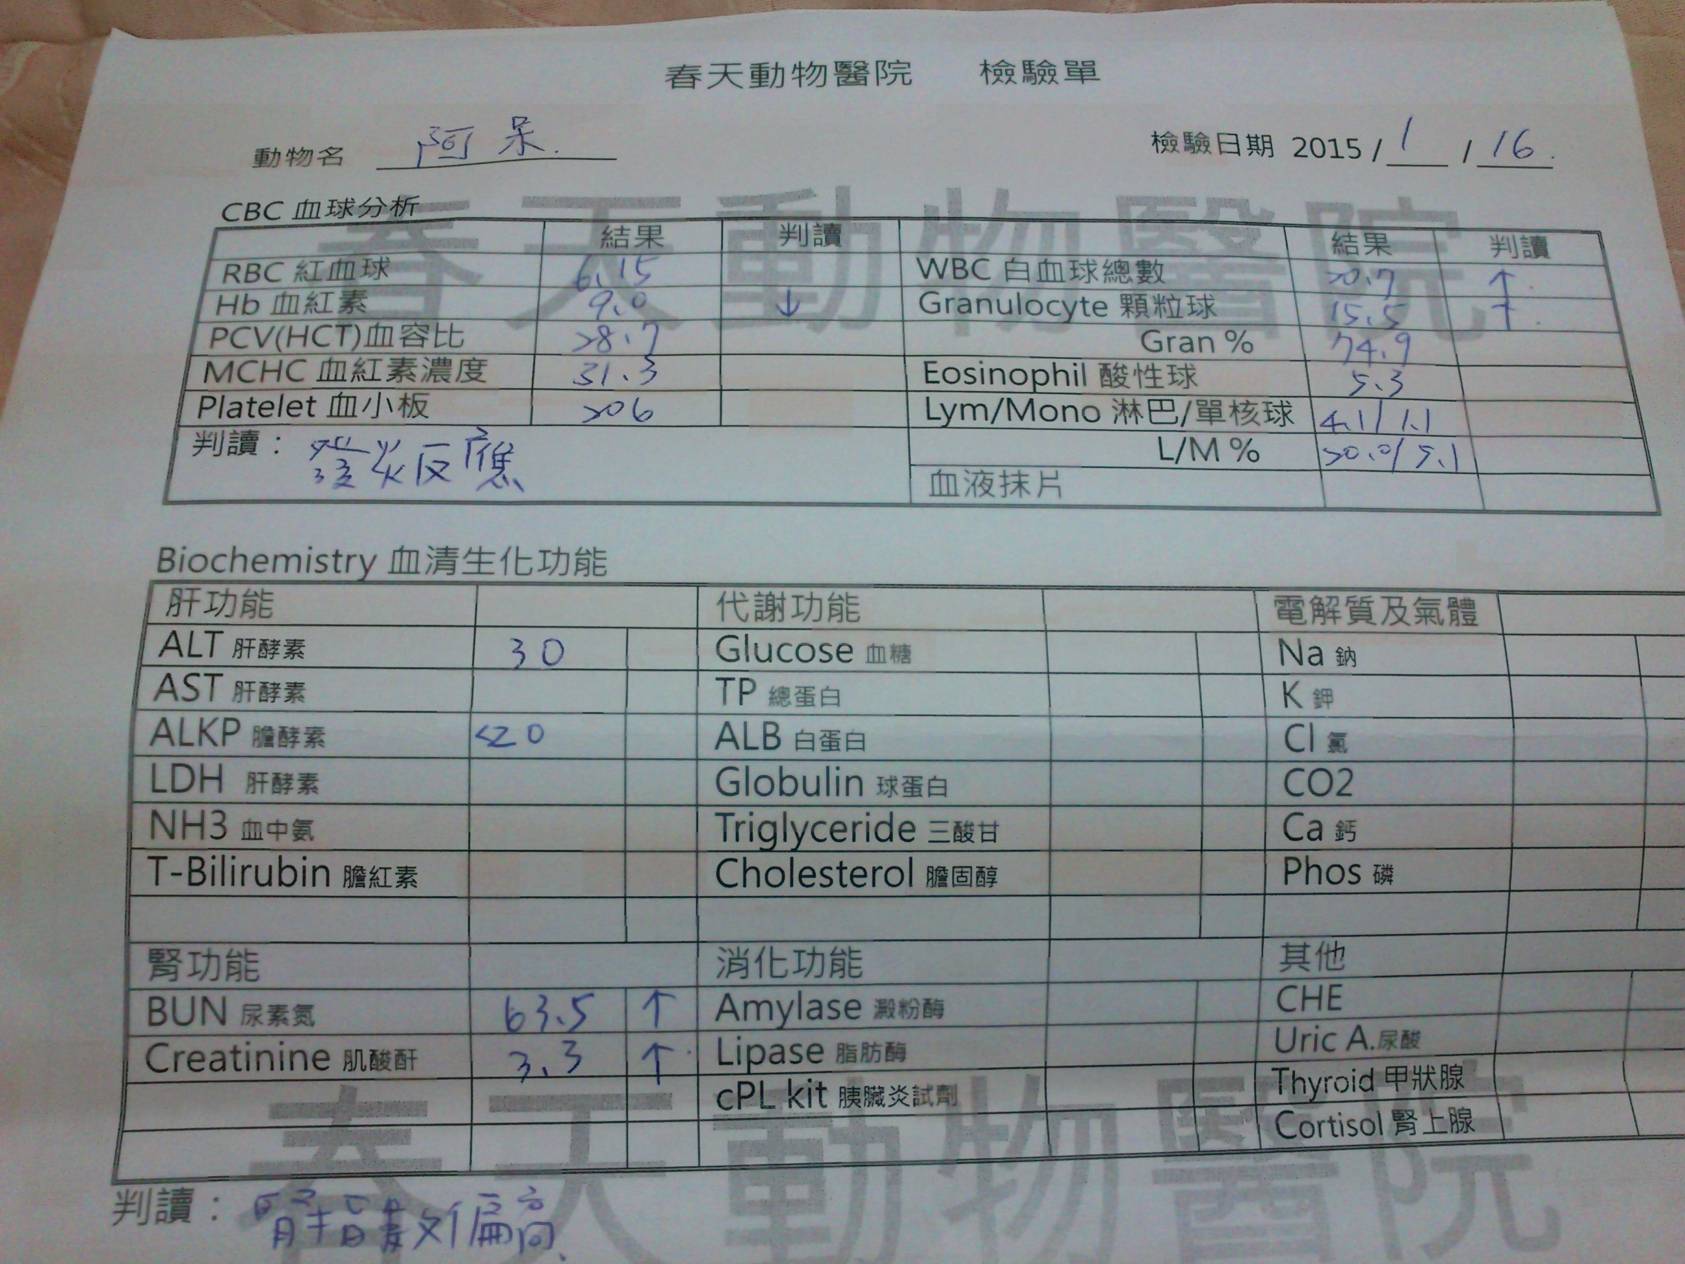 春天動物醫院 檢驗單
動物名 阿呆. 檢驗日期 2015 / 1 / 16.
CBC 血球分析
結果 判讀 結果 判讀
RBC 紅血球 6.15 WBC 白血球總數 20.7 ↑
Hb 血紅素 9.0 ↓ Granulocyte 顆粒球 15.5 ↑
PCV(HCT)血容比 28.7 Gran % 74.9
MCHC 血紅素濃度 31.3 Eosinophil 酸性球 5.3
Platelet 血小板 206 Lym/Mono 淋巴/單核球 4.1/1.1
判讀： 發炎反應 L/M % 20.0/5.1
血液抹片
Biochemistry 血清生化功能
肝功能 代謝功能 電解質及氣體
ALT 肝酵素 30 Glucose 血糖 Na 鈉
AST 肝酵素 TP 總蛋白 K 鉀
ALKP 膽酵素 <20 ALB 白蛋白 Cl 氯
LDH 肝酵素 Globulin 球蛋白 CO2
NH3 血中氨 Triglyceride 三酸甘 Ca 鈣
T-Bilirubin 膽紅素 Cholesterol 膽固醇 Phos 磷
腎功能 消化功能 其他
BUN 尿素氮 63.5 ↑ Amylase 澱粉酶 CHE
Creatinine 肌酸酐 3.3 ↑ Lipase 脂肪酶 Uric A.尿酸
cPL kit 胰臟炎試劑 Thyroid 甲狀腺
Cortisol 腎上腺
判讀： 腎指數偏高
春天動物醫院
春天動物醫院